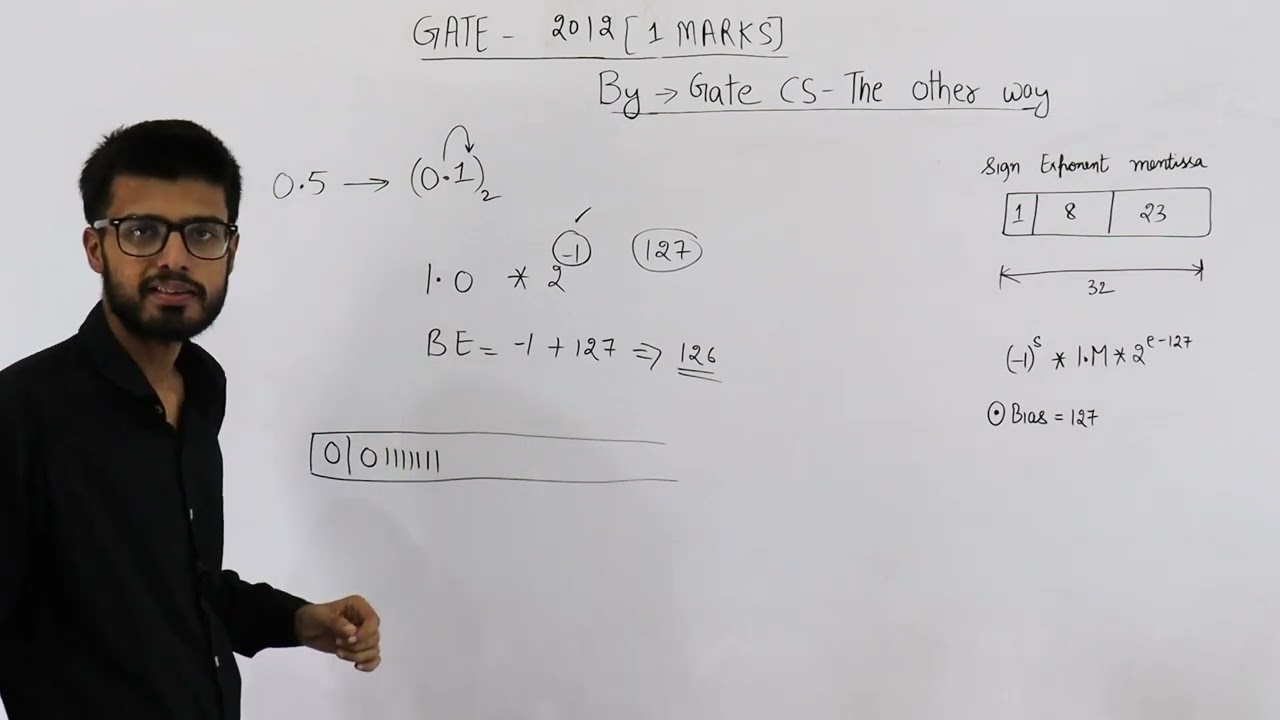 GATE - 2012 [1 MARKS]
By → Gate CS - The other way
0.5 → (0.1)₂
1.0 * 2⁻¹ ✓ 127
BE = -1 + 127 ⇒ 126
0 | 0 1111111
Sign Exponent mentissa
1 | 8 | 23
32
(-1)ˢ * 1.M * 2ᵉ⁻¹²⁷
⊙ Bias = 127